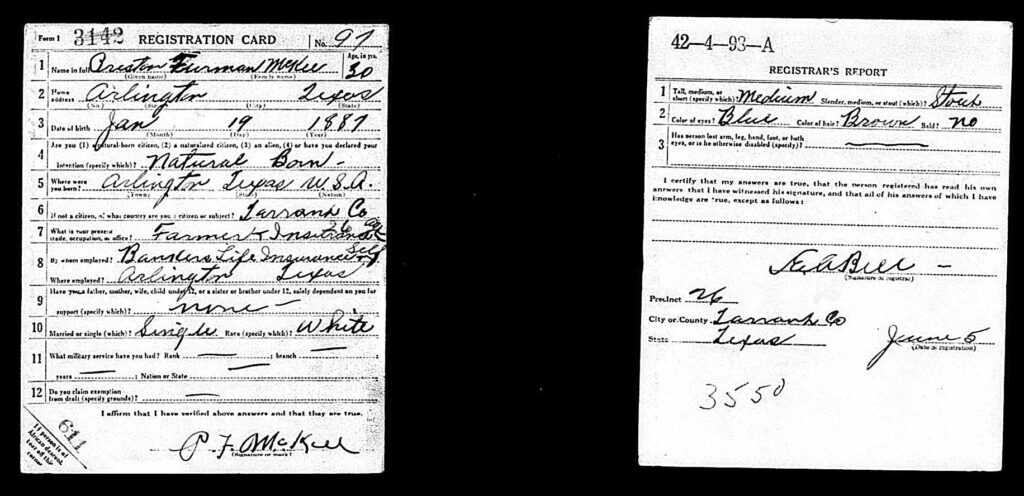 Form 1 3142 REGISTRATION CARD No. 97
1 Name in full Preston Furman McKee Age, in yrs. 30
(Given name) (Family name)
2 Home address Arlington Texas
(No.) (Street) (City) (State)
3 Date of birth Jan 19 1887
(Month) (Day) (Year)
Are you (1) a natural-born citizen, (2) a naturalized citizen, (3) an alien, (4) or have you declared your
4 intention (specify which)? Natural Born -
5 Where were you born? Arlington Texas U.S.A.
(Town) (State) (Nation)
6 If not a citizen, of what country are you a citizen or subject? Tarrant Co
7 What is your present trade, occupation, or office? Farmer & Insurance
8 By whom employed? Bankers Life Insurance Self
Where employed? Arlington Texas
9 Have you a father, mother, wife, child under 12, or a sister or brother under 12, solely dependent on you for
support (specify which)? none -
10 Married or single (which)? Single Race (specify which)? White
11 What military service have you had? Rank — ; branch — ;
years — ; Nation or State —
12 Do you claim exemption from draft (specify grounds)? —
I affirm that I have verified above answers and that they are true.
P F McKee
(Signature or mark)
611
If person is of
African descent,
tear off this
corner
42-4-93-A
REGISTRAR'S REPORT
1 Tall, medium, or short (specify which)? Medium Slender, medium, or stout (which)? Stout
2 Color of eyes? Blue Color of hair? Brown Bald? no
3 Has person lost arm, leg, hand, foot, or both
eyes, or is he otherwise disabled (specify)? —
I certify that my answers are true, that the person registered has read his own
answers, that I have witnessed his signature, and that all of his answers of which I have
knowledge are true, except as follows:
Bell -
(Signature of registrar)
Precinct 26
City or County Tarrant Co
State Texas June 5
(Date of registration)
3550